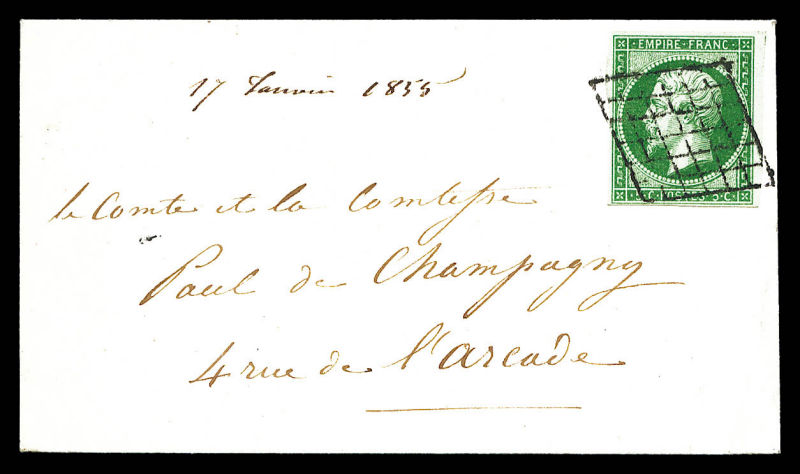 EMPIRE · FRANC ·
17 Janvier 1855
le Comte et la Comtesse
Paul de Champagny
4 rue de l'arcade
5·C· POSTES·5·C·